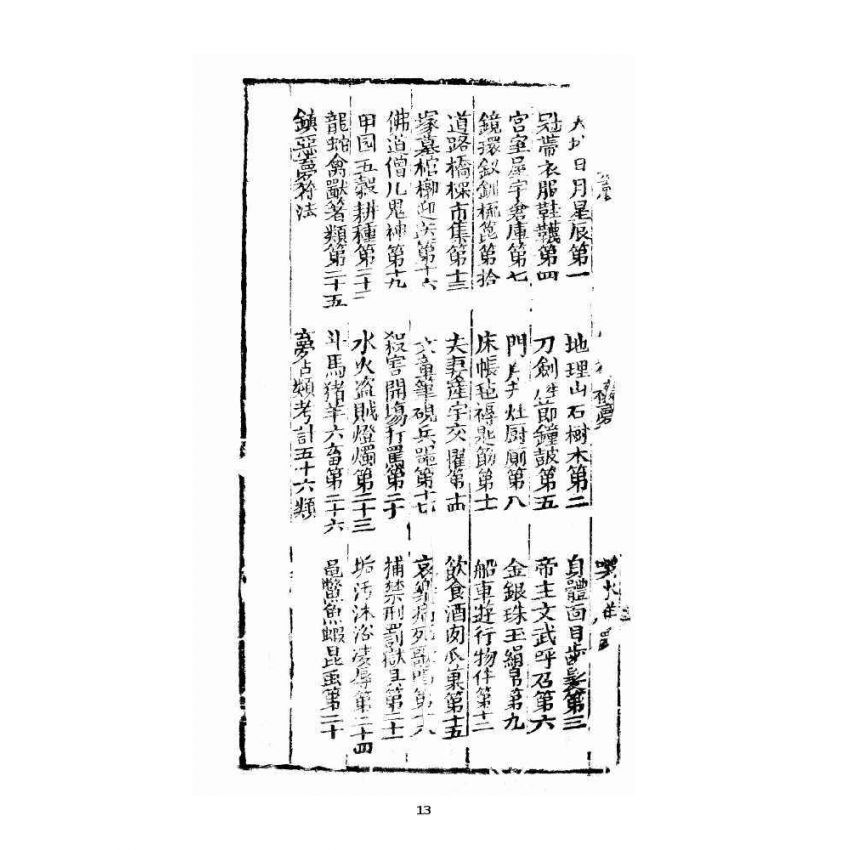 天地日月星辰第一 地理山石樹木第二 身體面目齒髮第三
冠帶衣服鞋韈第四 刀劍節鐘鼓第五 帝王文武呼召第六
宮室屋宇倉庫第七 門户井灶厨厠第八 金銀珠玉絹帛第九
鏡環釵釧梳篦第拾 床帳毡褥匙筯第十一 船車遊行物件第十二
道路橋樑市集第十三 夫妻產孕交懽第十四 飲食酒肉瓜菓第十五
塚墓棺槨迎送第十六 筆硯兵器第十七 哀樂病死歌唱第十八
佛道僧儿鬼神第十九 殺害鬪傷打罵第二十 捕禁刑罰獄具第二十一
田园五穀耕種第二十二 水火盗賊燈燭第二十三 垢汚沐浴凌辱第二十四
龍蛇禽獸等類第二十五 牛馬猪羊六畜第二十六 黽鱉魚蝦昆虫第二十
鎮惡夢符法 夢占類考計五十六類
13